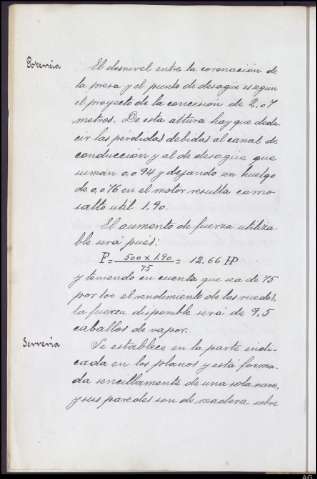 Potencia
El desnivel entre la coronacion de
la presa y el punto de desague segun
el proyecto de la concesion de 2.07
metros. De esta altura hay que dedu
cir las perdidas debidas al canal de
conduccion y al de desague que
suman 0,094 y dejando un huelgo
de 0,076 en el motor resulta como
salto util 1.90
El aumento de fuerza utiliza
ble será pues:
P = 500 x 1.90 / 75 = 12.66 HP
y teniendo en cuenta que sea de 75
por 100 el rendimiento de las ruedas,
la fuerza disponible será de 9,5
caballos de vapor.
Serreria
Se establece en la parte indi-
cada en los planos y está forma-
da sencillamente de una sola nave,
y sus paredes son de madera sobre